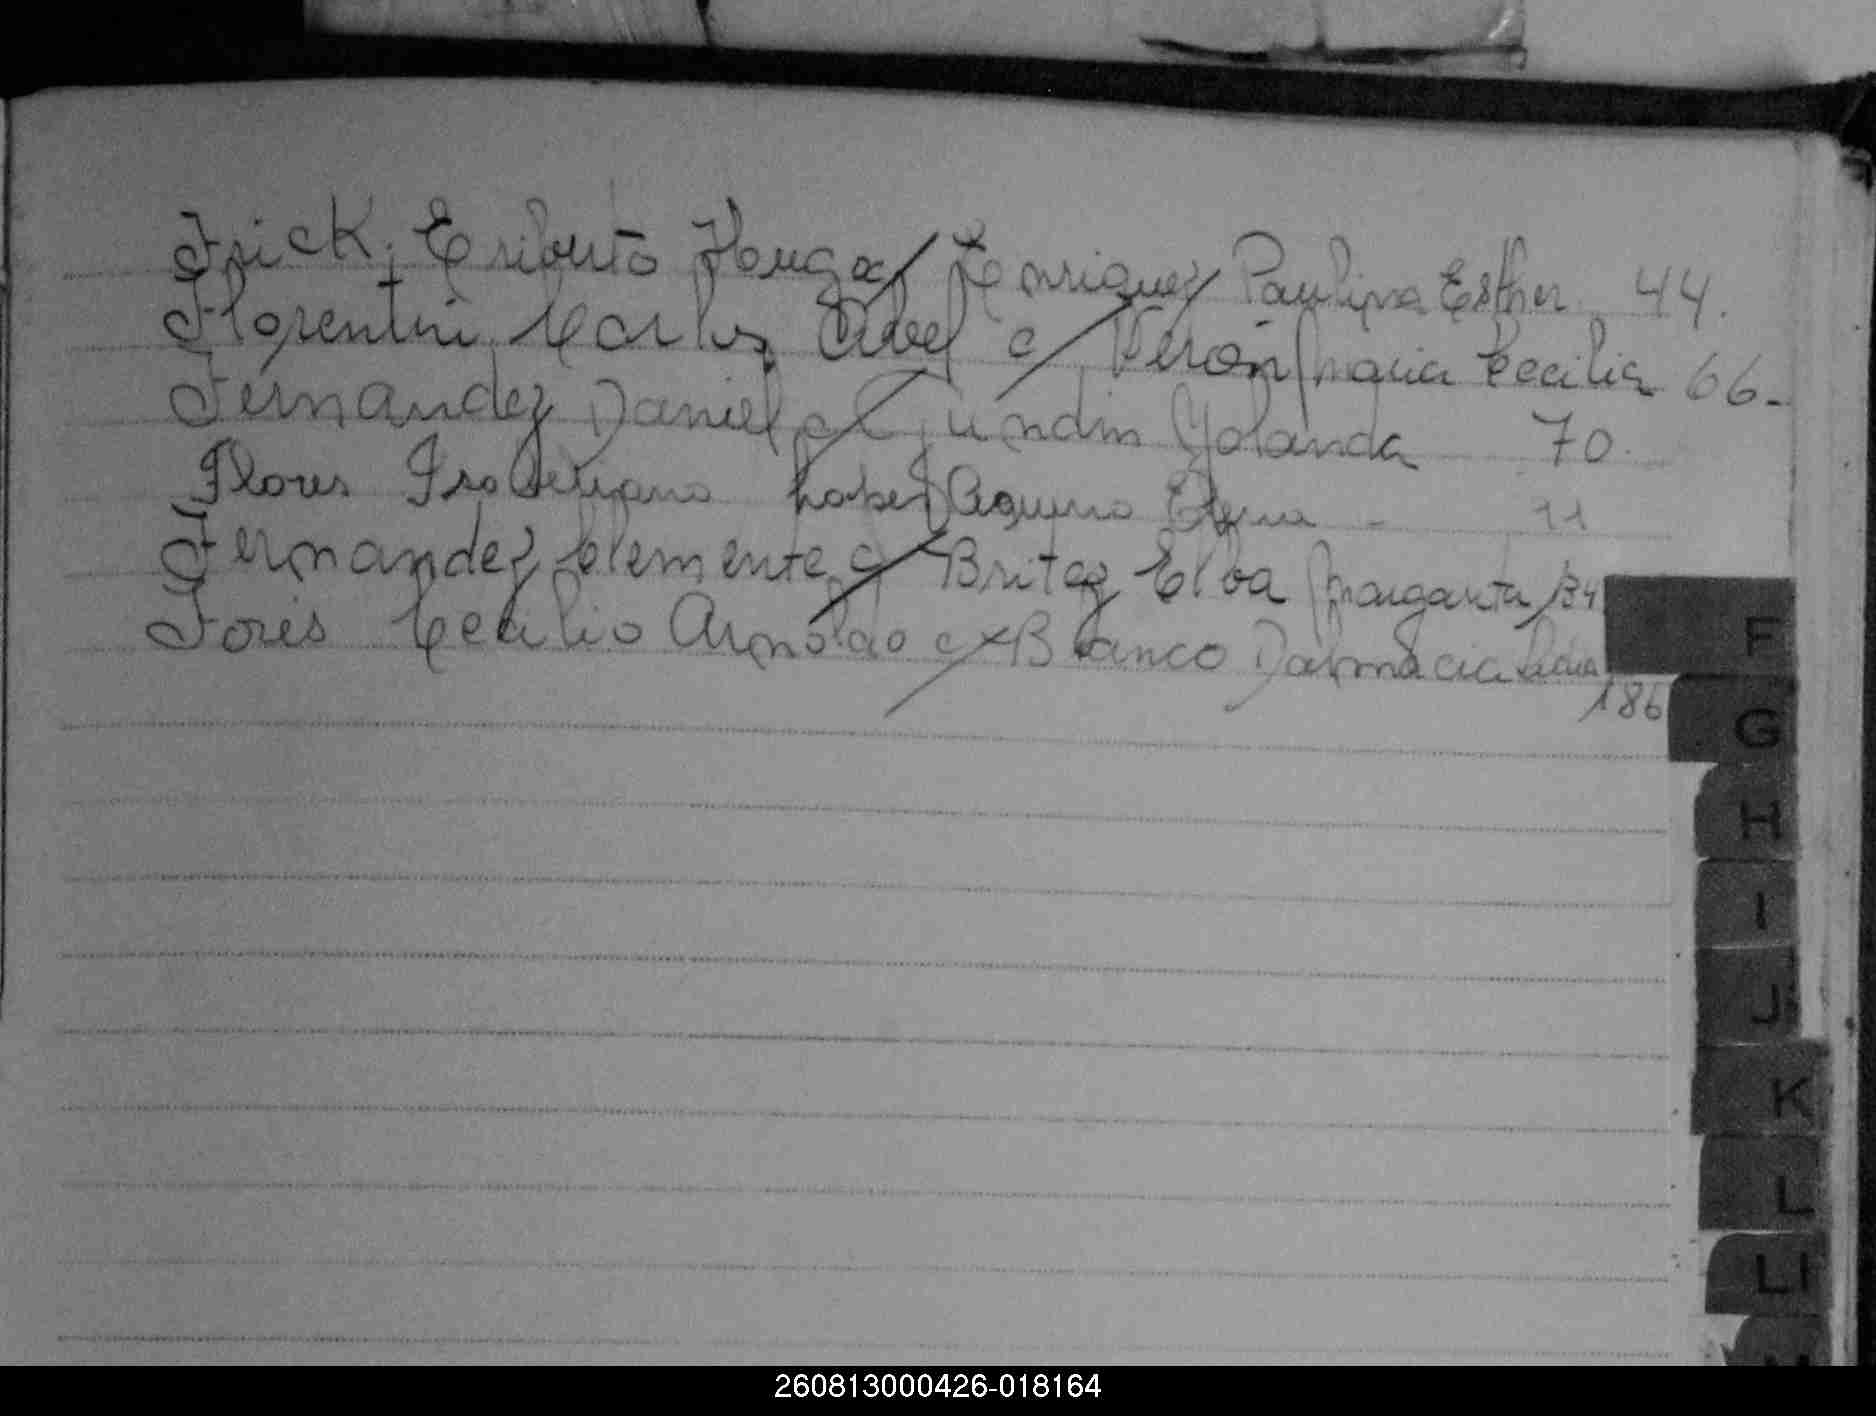 Frick, Eriberto Hugo c/ Henriquez Paulina Esther 44.
Florentin, Carlos Abel c/ Verón Maria Cecilia 66-
Fernandez Daniel c/ Gundin Yolanda 70.
Flores Aquino Elena - 11
Fernandez Clemente c/ Britez Elba Margarita 134
Fores Cecilio Arnoldo c/ Blanco Dalmacia
186
F
G
H
I
J
K
L
Ll
260813000426-018164